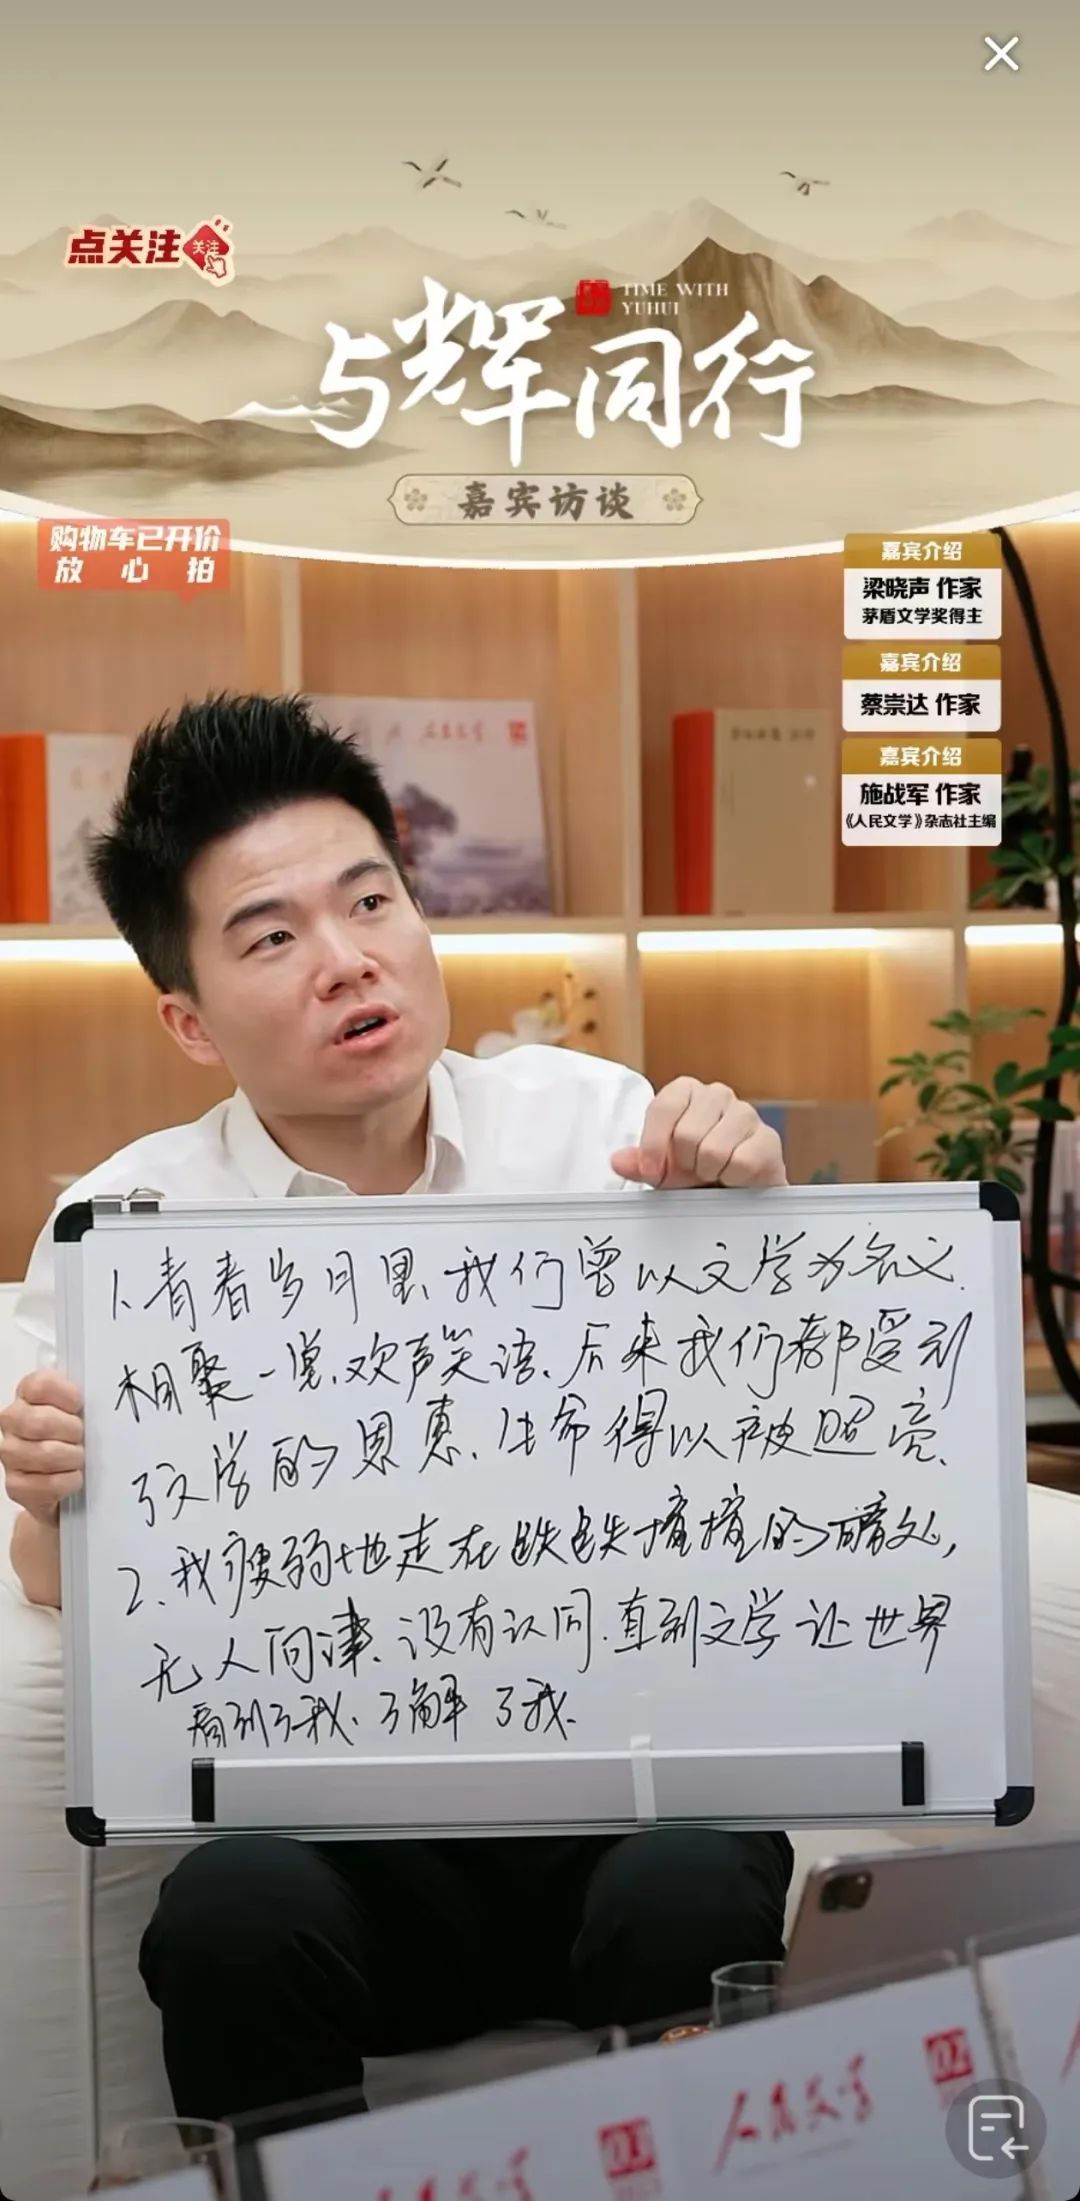 点关注
关注
TIME WITH
YUHUI
与辉同行
嘉宾访谈
购物车已开价
放心拍
嘉宾介绍
梁晓声 作家
茅盾文学奖得主
嘉宾介绍
蔡崇达 作家
嘉宾介绍
施战军 作家
《人民文学》杂志社主编
人民文学
1、青春岁月里、我们曾以文学为名义、
相聚一堂、欢声笑语、后来我们都受到
了文学的恩惠、生命得以被照亮、
2、我疲弱地走在跌跌撞撞的暗处,
无人问津、没有认同、直到文学让世界
看到了我、了解了我、
人民文学
02
人民文学
01